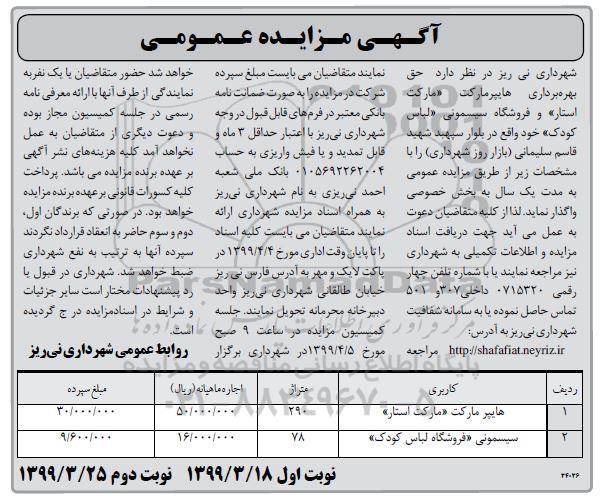 آگهـی مـزایـده عـمـومـی
شهرداری نی ریز در نظر دارد حق
بهره‌برداری هایپرمارکت «مارکت
استار» و فروشگاه سیسمونی «لباس
کودک» خود واقع در بلوار سپهبد شهید
قاسم سلیمانی (بازار روز شهرداری) را با
مشخصات زیر از طریق مزایده عمومی
به مدت یک سال به بخش خصوصی
واگذار نماید. لذا از کلیه متقاضیان دعوت
به عمل می آید جهت دریافت اسناد
مزایده و اطلاعات تکمیلی به شهرداری
نیز مراجعه نمایند یا با شماره تلفن چهار
رقمی ۰۷۱۵۳۲۰ داخلی ۳۰۷و ۵۰۱
تماس حاصل نموده یا به سامانه شفافیت
شهرداری نی‌ریز به آدرس:
http://shafafiat.neyriz.ir مراجعه
نمایند متقاضیان می بایست مبلغ سپرده
شرکت در مزایده را به صورت ضمانت نامه
بانکی معتبر در فرم‌های قابل قبول در وجه
شهرداری نی‌ریز با اعتبار حداقل ۳ ماه و
قابل تمدید و یا فیش واریزی به حساب
۰۱۰۵۶۹۲۲۶۲۰۰۴ بانک ملی شعبه
احمد نی‌ریزی به نام شهرداری نی‌ریز
به همراه اسناد مزایده شهرداری ارائه
نمایند متقاضیان می بایست کلیه اسناد
را تا پایان وقت اداری مورخ ۱۳۹۹/۴/۴ در
پاکت لاک و مهر به آدرس فارس نی ریز
خیابان طالقانی شهرداری نی‌ریز واحد
دبیرخانه محرمانه تحویل نمایند. جلسه
کمیسیون مزایده در ساعت ۹ صبح
مورخ ۱۳۹۹/۴/۵در شهرداری برگزار
خواهد شد حضور متقاضیان یا یک نفربه
نمایندگی از طرف آنها با ارائه معرفی نامه
رسمی در جلسه کمیسیون مجاز بوده
و دعوت دیگری از متقاضیان به عمل
نخواهد آمد کلیه هزینه‌های نشر آگهی
بر عهده برنده مزایده می باشد. پرداخت
کلیه کسورات قانونی برعهده برنده مزایده
خواهد بود. در صورتی که برندگان اول،
دوم و سوم حاضر به انعقاد قرارداد نگردند
سپرده آنها به ترتیب به نفع شهرداری
ضبط خواهد شد. شهرداری در قبول یا
رد پیشنهادات مختار است سایر جزئیات
و شرایط در اسنادمزایده در ج گردیده
است.
روابط عمومی شهرداری نی‌ریز
ردیف کاربری متراژ اجاره ماهیانه (ریال) مبلغ سپرده
۱ هایپر مارکت «مارکت استار» ۲۹۰ ۵۰/۰۰۰/۰۰۰ ۳۰/۰۰۰/۰۰۰
۲ سیسمونی «فروشگاه لباس کودک» ۷۸ ۱۶/۰۰۰/۰۰۰ ۹/۶۰۰/۰۰۰
۲۴۰۲۶ نوبت اول ۱۳۹۹/۳/۱۸ نوبت دوم ۱۳۹۹/۳/۲۵
ParsNamadData
پایگاه اطلاع رسانی مناقصه و مزایده
۰۲۱-۸۸۳۴۹۶۷۰-۵